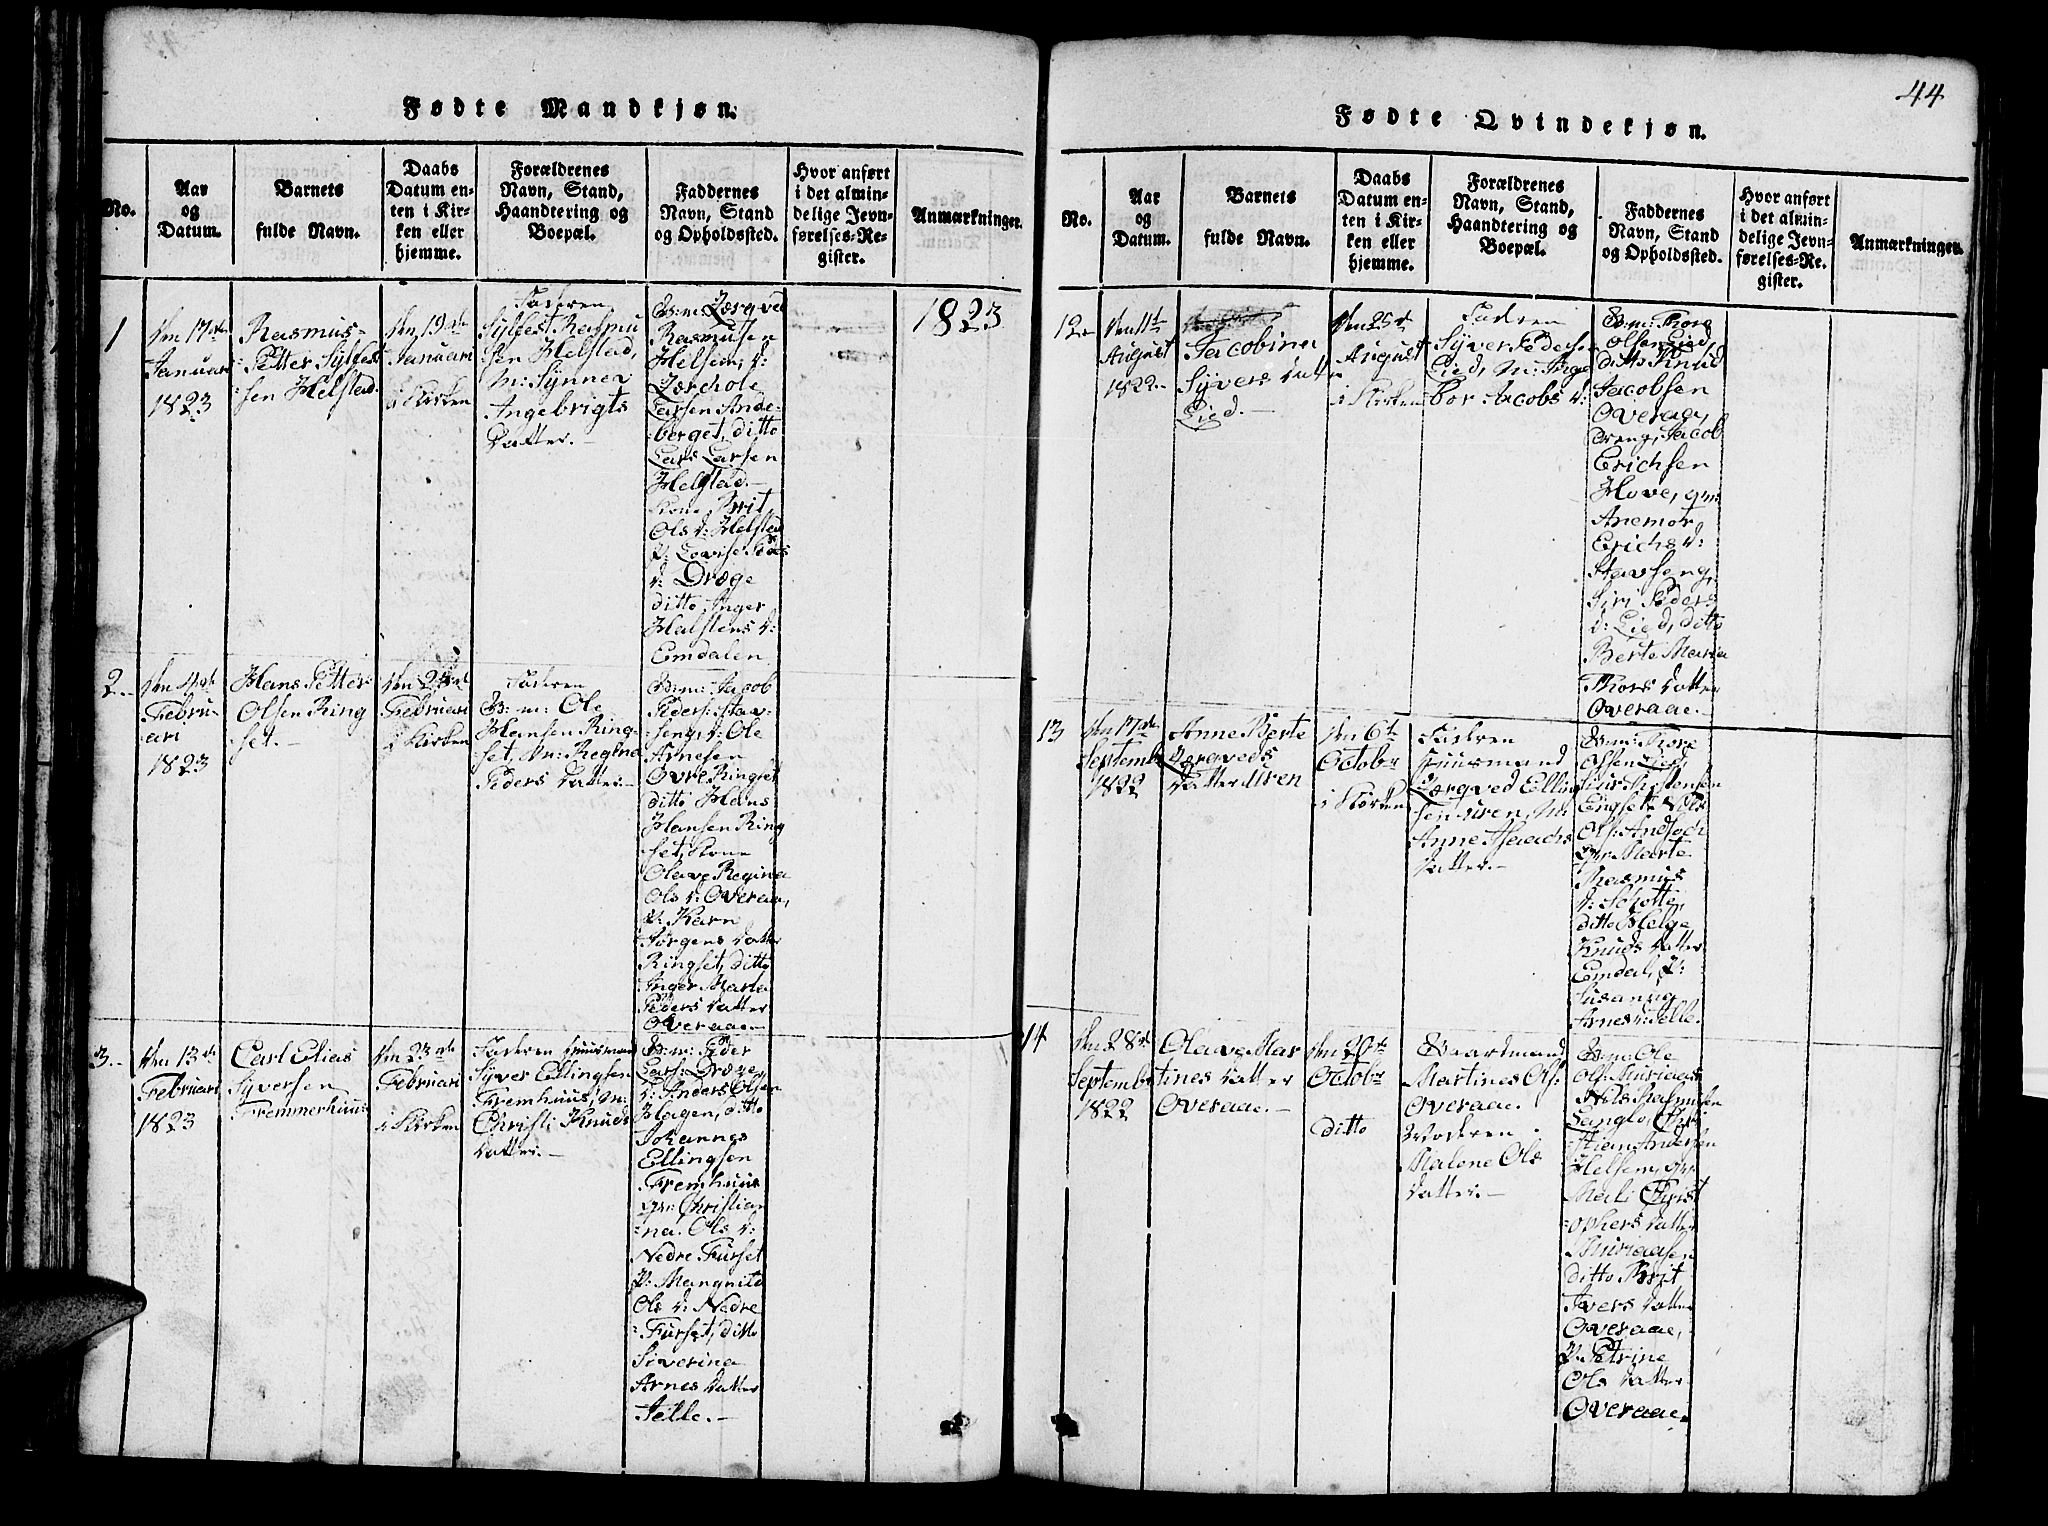 Fødte Mandkjøn.
No.
Aar
og
Datum.
Barnets
fulde Navn.
Daabs
Datum en-
ten i Kir-
ken eller
hjemme.
Forældrenes
Navn, Stand,
Haandtering og
Boepæl.
Faddernes
Navn, Stand
og Opholdssted.
Hvor anført
i det almin-
delige Jevn-
førelses-Re-
gister.
Anmærkninger.
1
den 17de
Januari
1823
Rasmus
Petter Sylfest
sen Helstad.
den 19de
Januari
i Kirken
Faderen
Sylfest Rasmu
sen Helstad,
M: Synnev
Angebrigts
Datter.
B:m: Lærqved
Rasmusen
Helsem, d:
Larsen Ande-
berget, ditto
Lars Larsen
Helstad.
Kone Brit
Ols d: Helstad
P: Lovise
d: Dræge
ditto Inger
Halstens d:
Emdalen
1823
2
den 4de
Febru-
ari
1823
Hans Petter
Olsen Ring
set.
den 23de
Februari
i Kirken
Faderen
B: m: Ole
Hansen Ring-
set, M: Regina
Peders Datter.
B:m: Jacob
Peders: Stav-
seng, d: Ole
Arnesen
Øvre Ringset
ditto Hans
Hansen Ring
set, Kone
Olave Regina
Ols d: Overaae,
P: Karn
Jørgens Datter
Ringset, ditto
Inger Marta
Peders Datter
Overaae.
3
den 13de
Februari
1823
Carl Elias
Syversen
Fremmerhuus
den 23de
Februari
i Kirken
Faderen Huusmand
Syver Ellingsen
Fremhuus, M:
Christi Knuds
Datter.
B: m: Peder
Lars: Dræge,
d: Anders Olsen
Hagen, ditto
Johannes
Ellingsen
Fremhuus
Gr: Christian
na Ols d:
Nedre Furset
P: Mangnite
Ols d: Nedre
Furset, ditto
Siverina
Arnes Datter
Telle.
44
Fødte Qvindekjøn.
No.
Aar
og
Datum.
Barnets
fulde Navn.
Daabs
Datum en-
ten i Kir-
ken eller
hjemme.
Forældrenes
Navn, Stand,
Haandtering og
Boepæl.
Faddernes
Navn, Stand
og Opholdssted.
Hvor anført
i det almin-
delige Jevn-
førelses-Re-
gister.
Anmærkninger.
12
den 11te
August
1822
Jacobina
Syvers Datt
Lied.
den 25de
August
i Kirken
Faderen
Syver Pedersen
Lied, M: Inge
bor Jacobs d:
B:m: Thore
Olsen Lied,
ditto Knud
Jacobsen
Overaae,
dreng, Jacob
Erichsen
Hove, gm:
Anemor
Erichs d:
Stavseng,
Siri Peders
d: Lied, ditto
Berte Maria
Thors Datter
Overaae.
13
den 17de
Septembr
1822
Anne Berte
Lærqveds
Datter Uren
den 6te
Octobr
i Kirken
Faderen
Huusmand
Lærqved Elling
sen Uren, M:
Anne Isaachs
Datter.
B:m: Thore
Olsen Lied,
Engset
Gr: Marte
Rasmus
d: Schotte,
ditto Helge
Knuds Datter
Emdal, P:
Susanna
Arnes d: Telle.
14
den 28de
Septembr
1822
Olave Mar
tines Datter
Overaae.
den 20de
Octobr
ditto
Baadmand
Martines Ols:
Overaae.
Moderen
Malene Ols
Datter.
B:m: Ole
Ols: Muriaas
Nils Rasmusen
Langlo, Chri
stian Andersen
Helsem, gr:
Mali Christ
ophers Datter
Muriaasen
ditto Brit
Ivers Datter
Overaae,
P: Petrine
Ols Datter
Overaae.